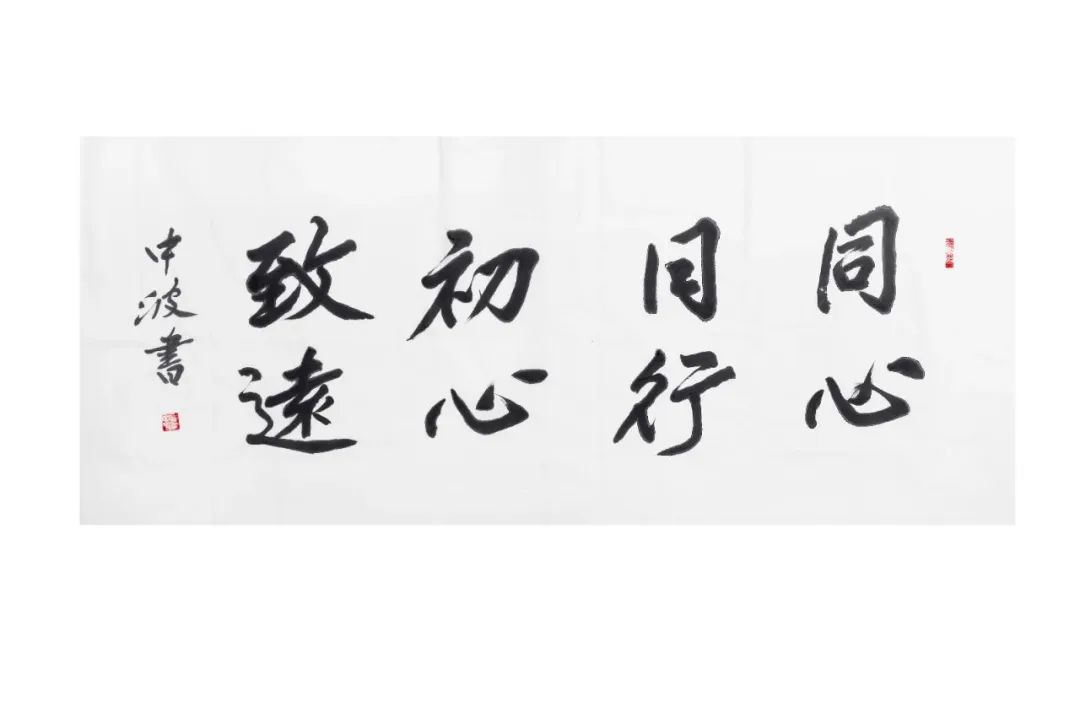 同心
同行
初心
致遠
中波書